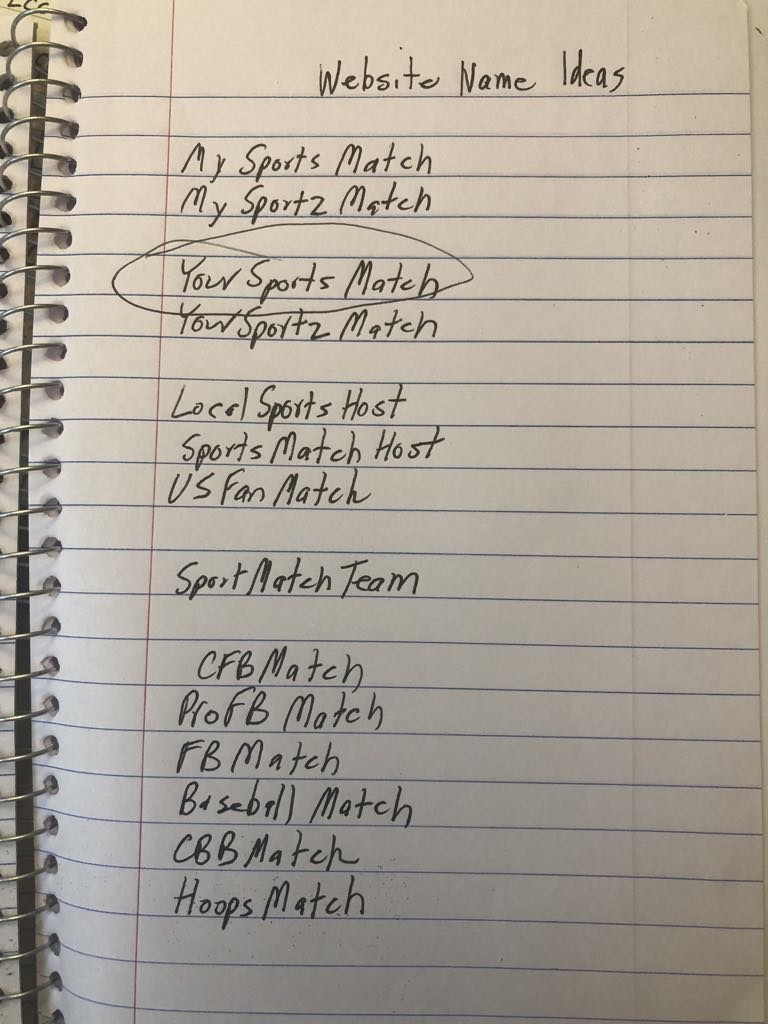 Website Name Ideas
My Sports Match
My Sportz Match
Your Sports Match
Your Sportz Match
Local Sports Host
Sports Match Host
US Fan Match
Sport Match Team
CFB Match
ProFB Match
FB Match
Baseball Match
CBB Match
Hoops Match